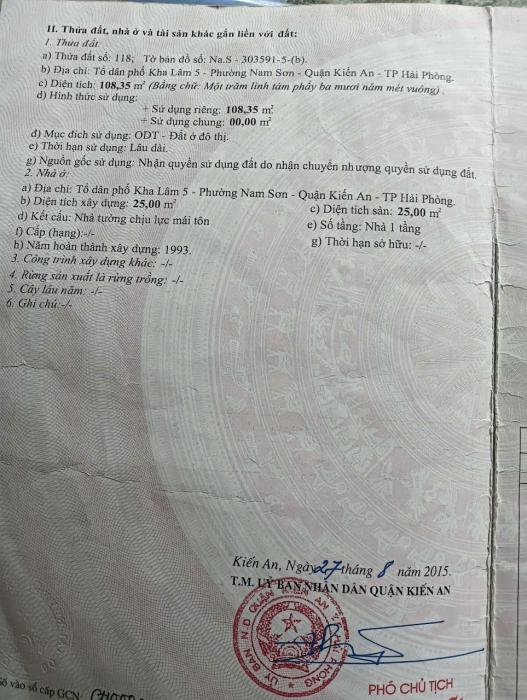 II. Thửa đất, nhà ở và tài sản khác gắn liền với đất:
1. Thửa đất
a) Thửa đất số: 118; Tờ bản đồ số: Na.S - 303591-5-(b).
b) Địa chỉ: Tổ dân phố Kha Lâm 5 - Phường Nam Sơn - Quận Kiến An - TP Hải Phòng.
c) Diện tích: 108,35 m² (Bằng chữ: Một trăm linh tám phẩy ba mươi năm mét vuông).
d) Hình thức sử dụng:
+ Sử dụng riêng: 108,35 m²
+ Sử dụng chung: 00,00 m²
đ) Mục đích sử dụng: ODT - Đất ở đô thị.
e) Thời hạn sử dụng: Lâu dài.
g) Nguồn gốc sử dụng: Nhận quyền sử dụng đất do nhận chuyển nhượng quyền sử dụng đất.
2. Nhà ở:
a) Địa chỉ: Tổ dân phố Kha Lâm 5 - Phường Nam Sơn - Quận Kiến An - TP Hải Phòng.
b) Diện tích xây dựng: 25,00 m²
c) Diện tích sàn: 25,00 m²
d) Kết cấu: Nhà tường chịu lực mái tôn
e) Số tầng: Nhà 1 tầng
f) Cấp (hạng):-/-
g) Thời hạn sở hữu: -/-
h) Năm hoàn thành xây dựng: 1993.
3. Công trình xây dựng khác: -/-
4. Rừng sản xuất là rừng trồng: -/-
5. Cây lâu năm: -/-
6. Ghi chú:-/-
Kiến An, Ngày 27 tháng 8 năm 2015.
T.M. UỶ BAN NHÂN DÂN QUẬN KIẾN AN
ỦY BAN N.D QUẬN KIẾN AN T.P HẢI PHÒNG
PHÓ CHỦ TỊCH
Số vào sổ cấp GCN: